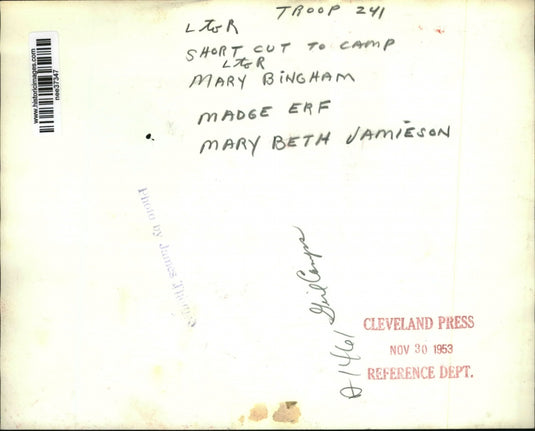 TROOP 241
L to R
SHORT CUT TO CAMP
L to R
MARY BINGHAM
MADGE ERF
MARY BETH JAMIESON
www.historicimages.com
nee37347
Photo by James
Girl Camps
A1461
CLEVELAND PRESS
NOV 30 1953
REFERENCE DEPT.